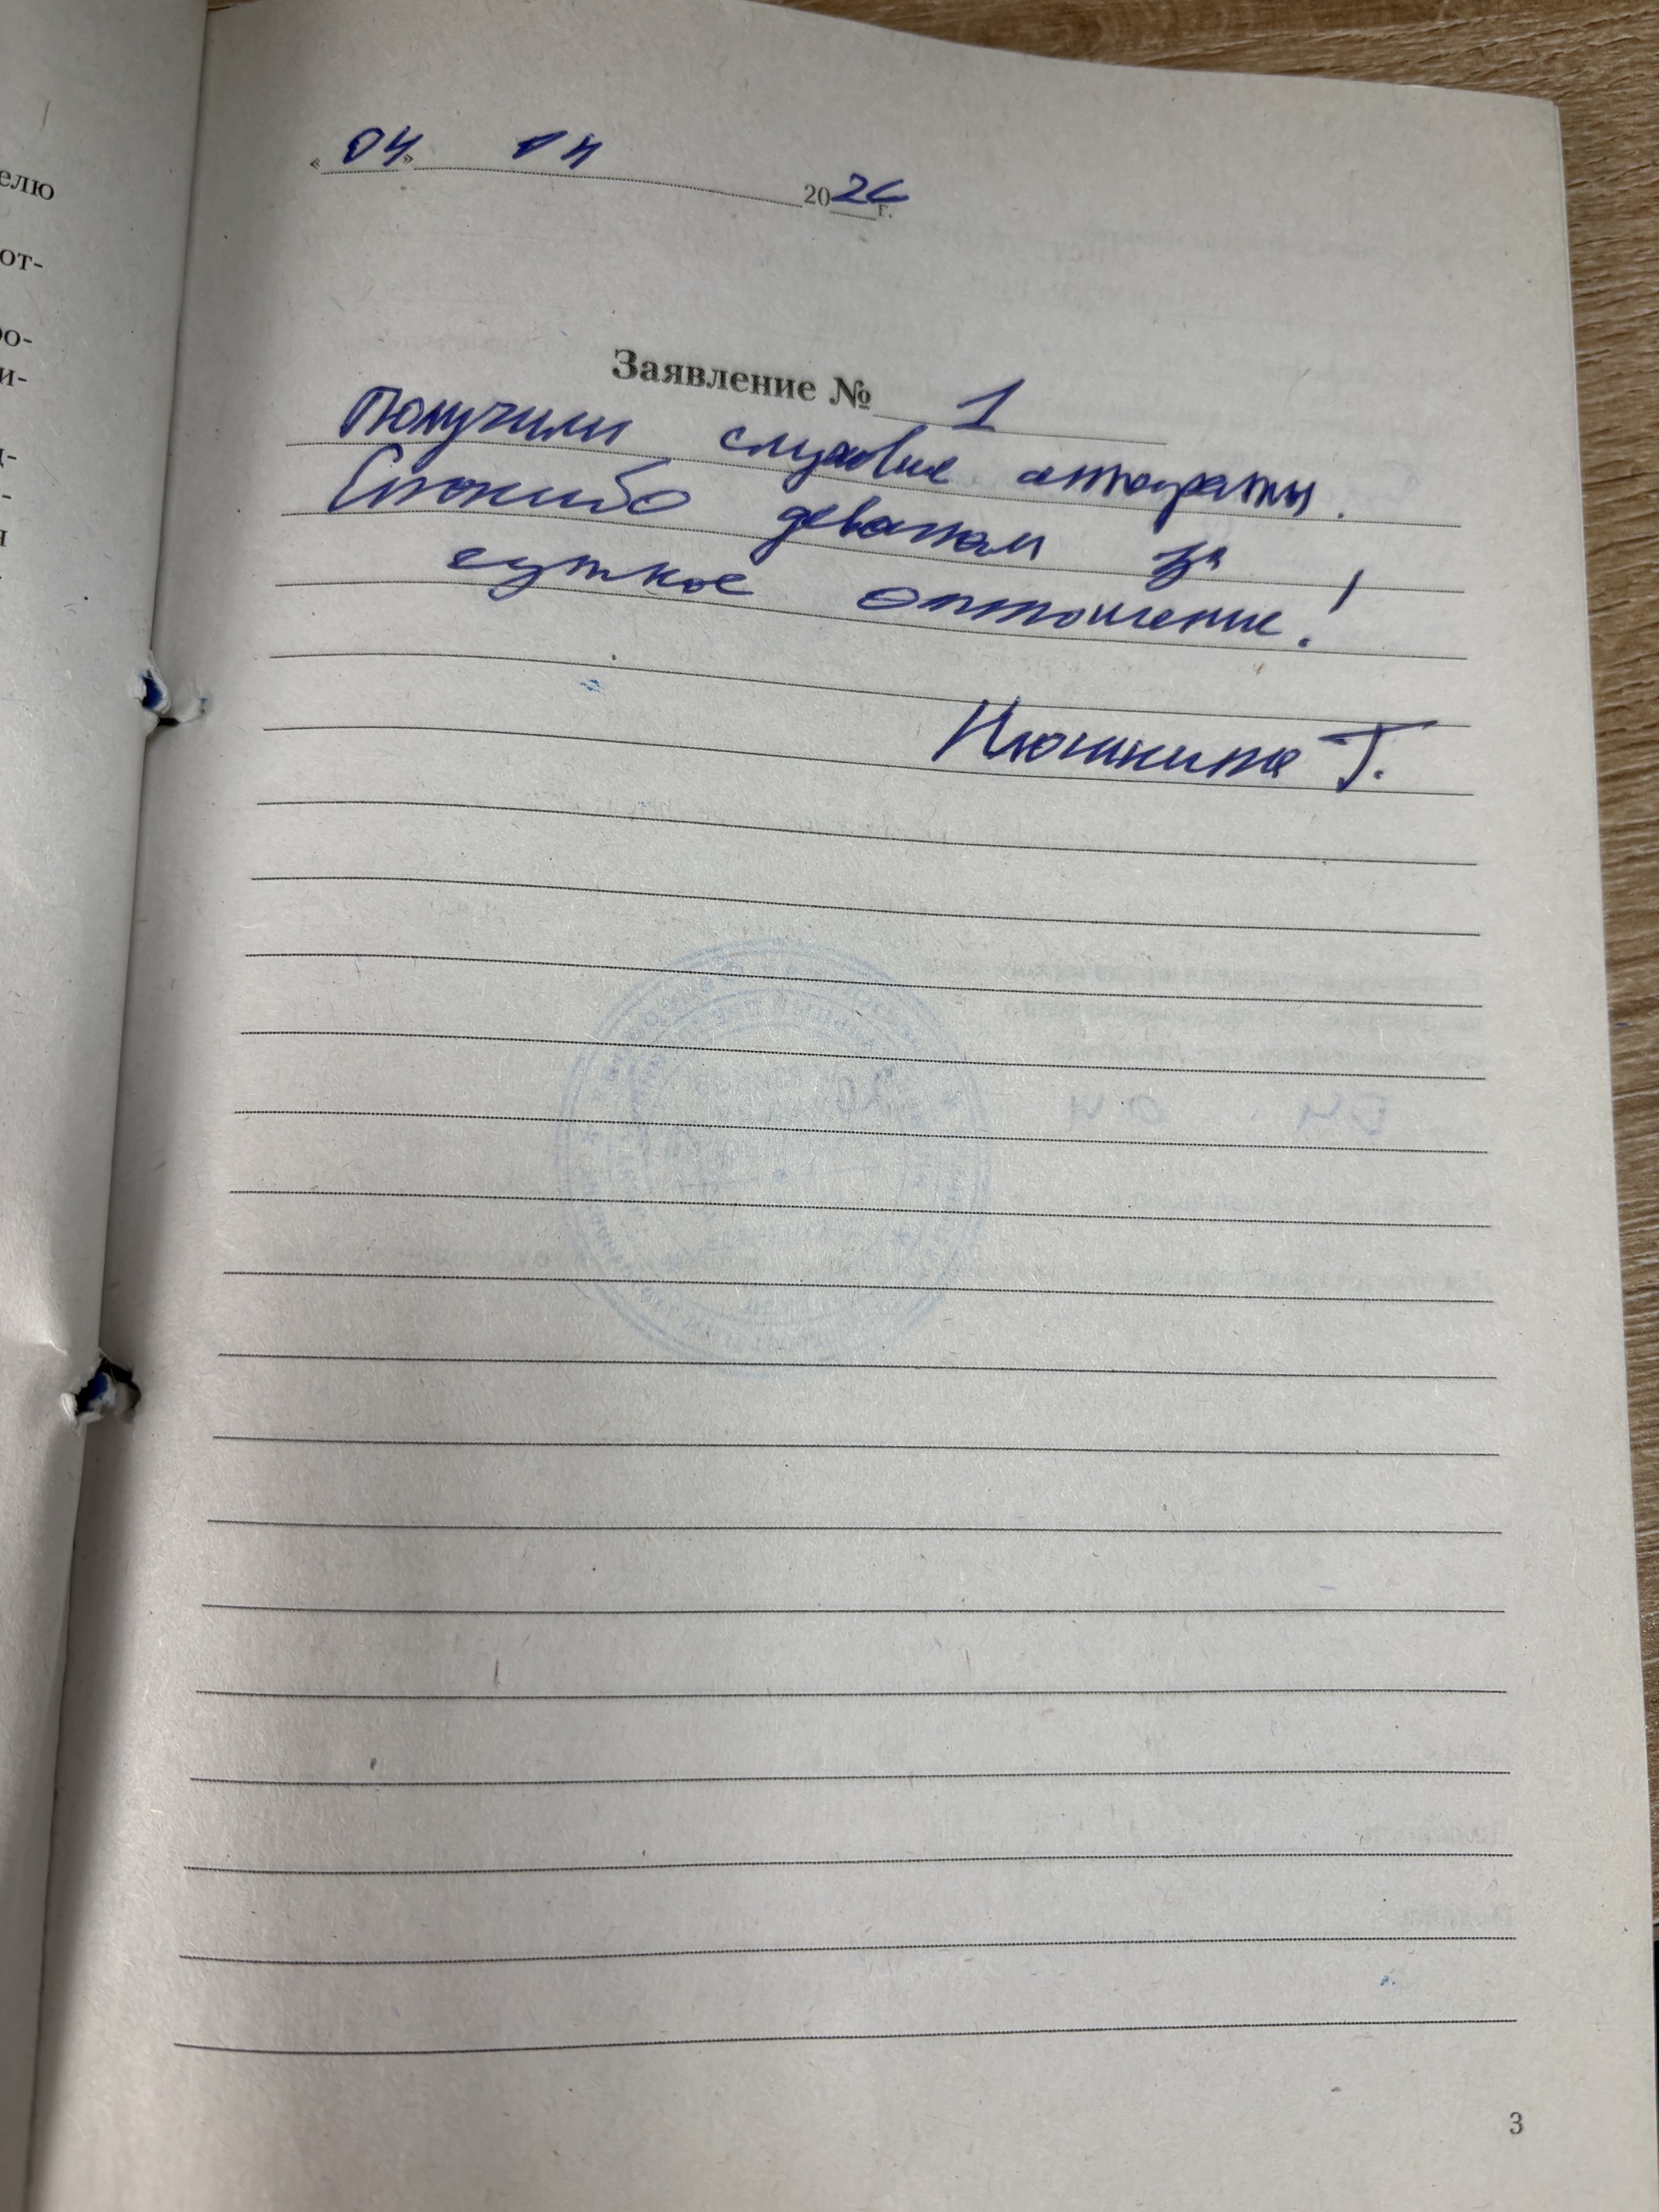 елю
от-
ро-
и-
д-
-
я
«04» 04 2026 г.
Заявление № 1
Получили слуховые аппараты.
Спасибо девочкам за
чуткое отношение!
Илюшкина Г.
3